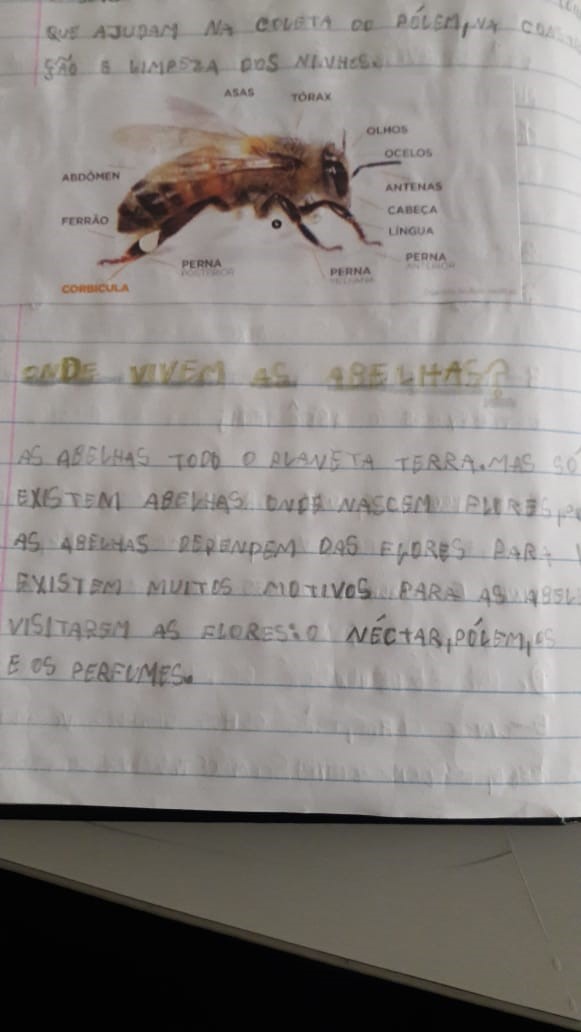 QUE AJUDAM NA COLETA DO PÓLEM, NA
ÇÃO E LIMPEZA DOS NINHOS.
ASAS
TÓRAX
OLHOS
OCELOS
ABDÔMEN
ANTENAS
CABEÇA
FERRÃO
LÍNGUA
PERNA
ANTERIOR
PERNA
POSTERIOR
PERNA
MEDIANA
CORBÍCULA
ONDE VIVEM AS ABELHAS?
AS ABELHAS TODO O PLANETA TERRA. MAS SÓ
EXISTEM ABELHAS ONDE NASCEM FLORES,
AS ABELHAS DEPENDEM DAS FLORES PARA
EXISTEM MUITOS MOTIVOS PARA AS ABEL
VISITAREM AS FLORES: O NÉCTAR, PÓLEM, OS
E OS PERFUMES.